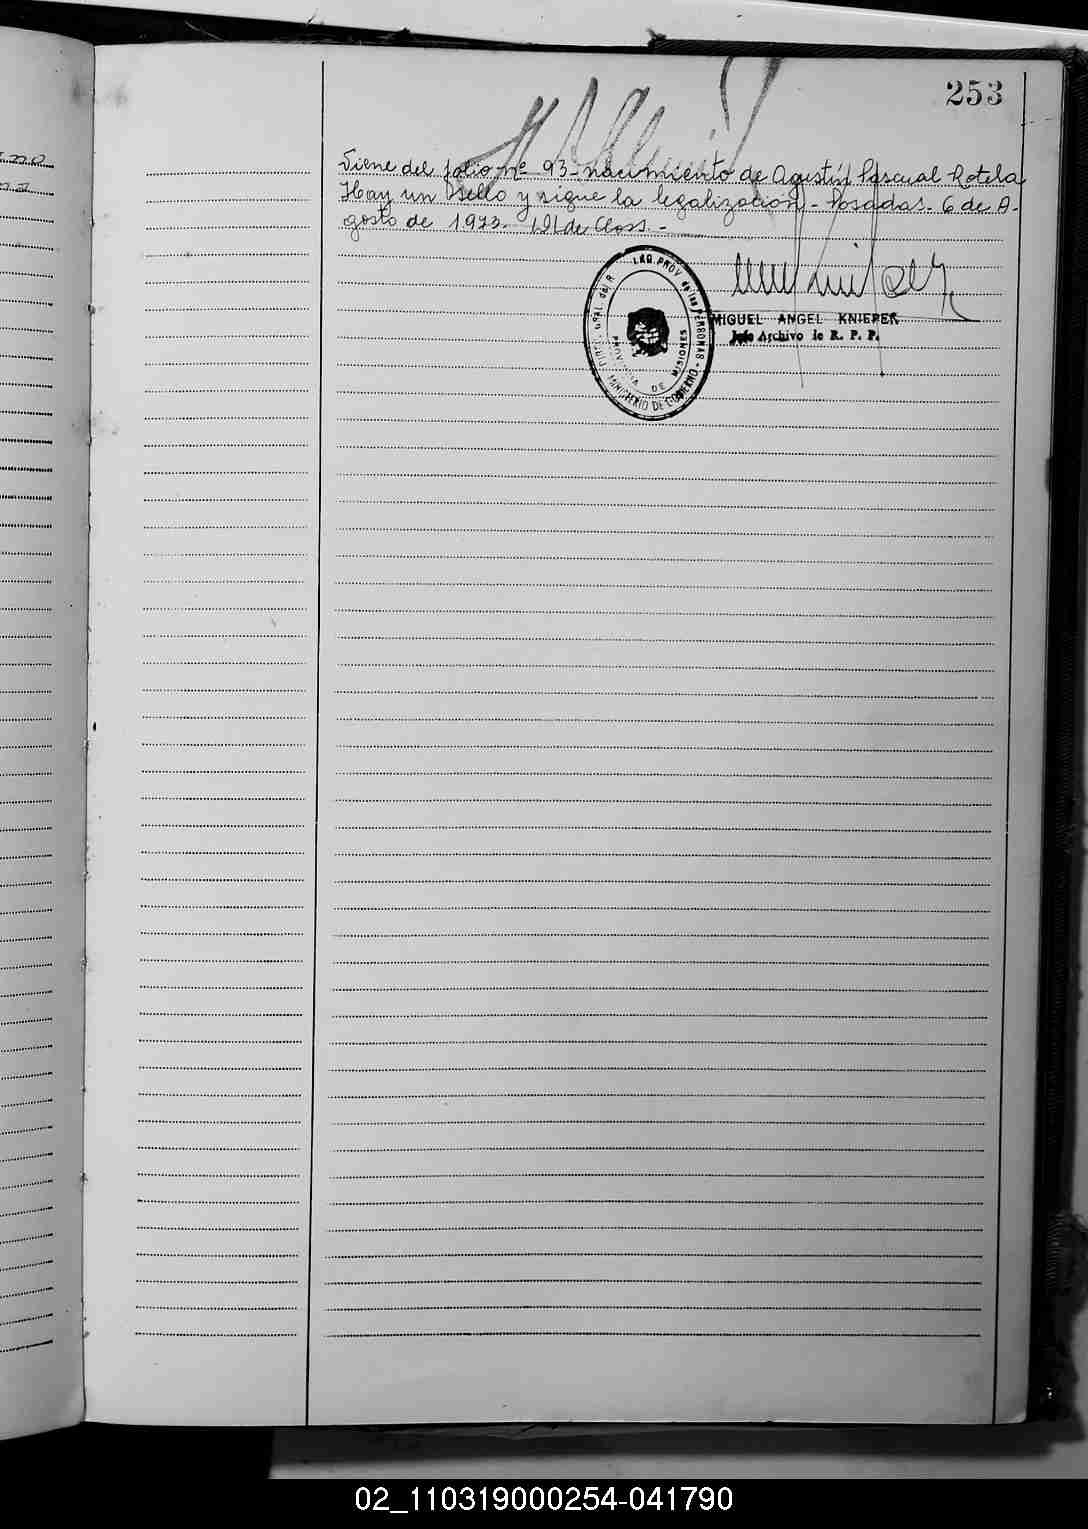 253
Viene del folio nº 93 - nacimiento de Agustín Pascual Rotela
Hay un sello y sigue la legalización - Posadas. 6 de A-
gosto de 1973. de Closs. -
MIGUEL ANGEL KNIEPER
Jefe Archivo de R. P. P.
PROV. de las PERSONAS
MINISTERIO DE GOBIERNO
PROVINCIA DE MISIONES
02_110319000254-041790